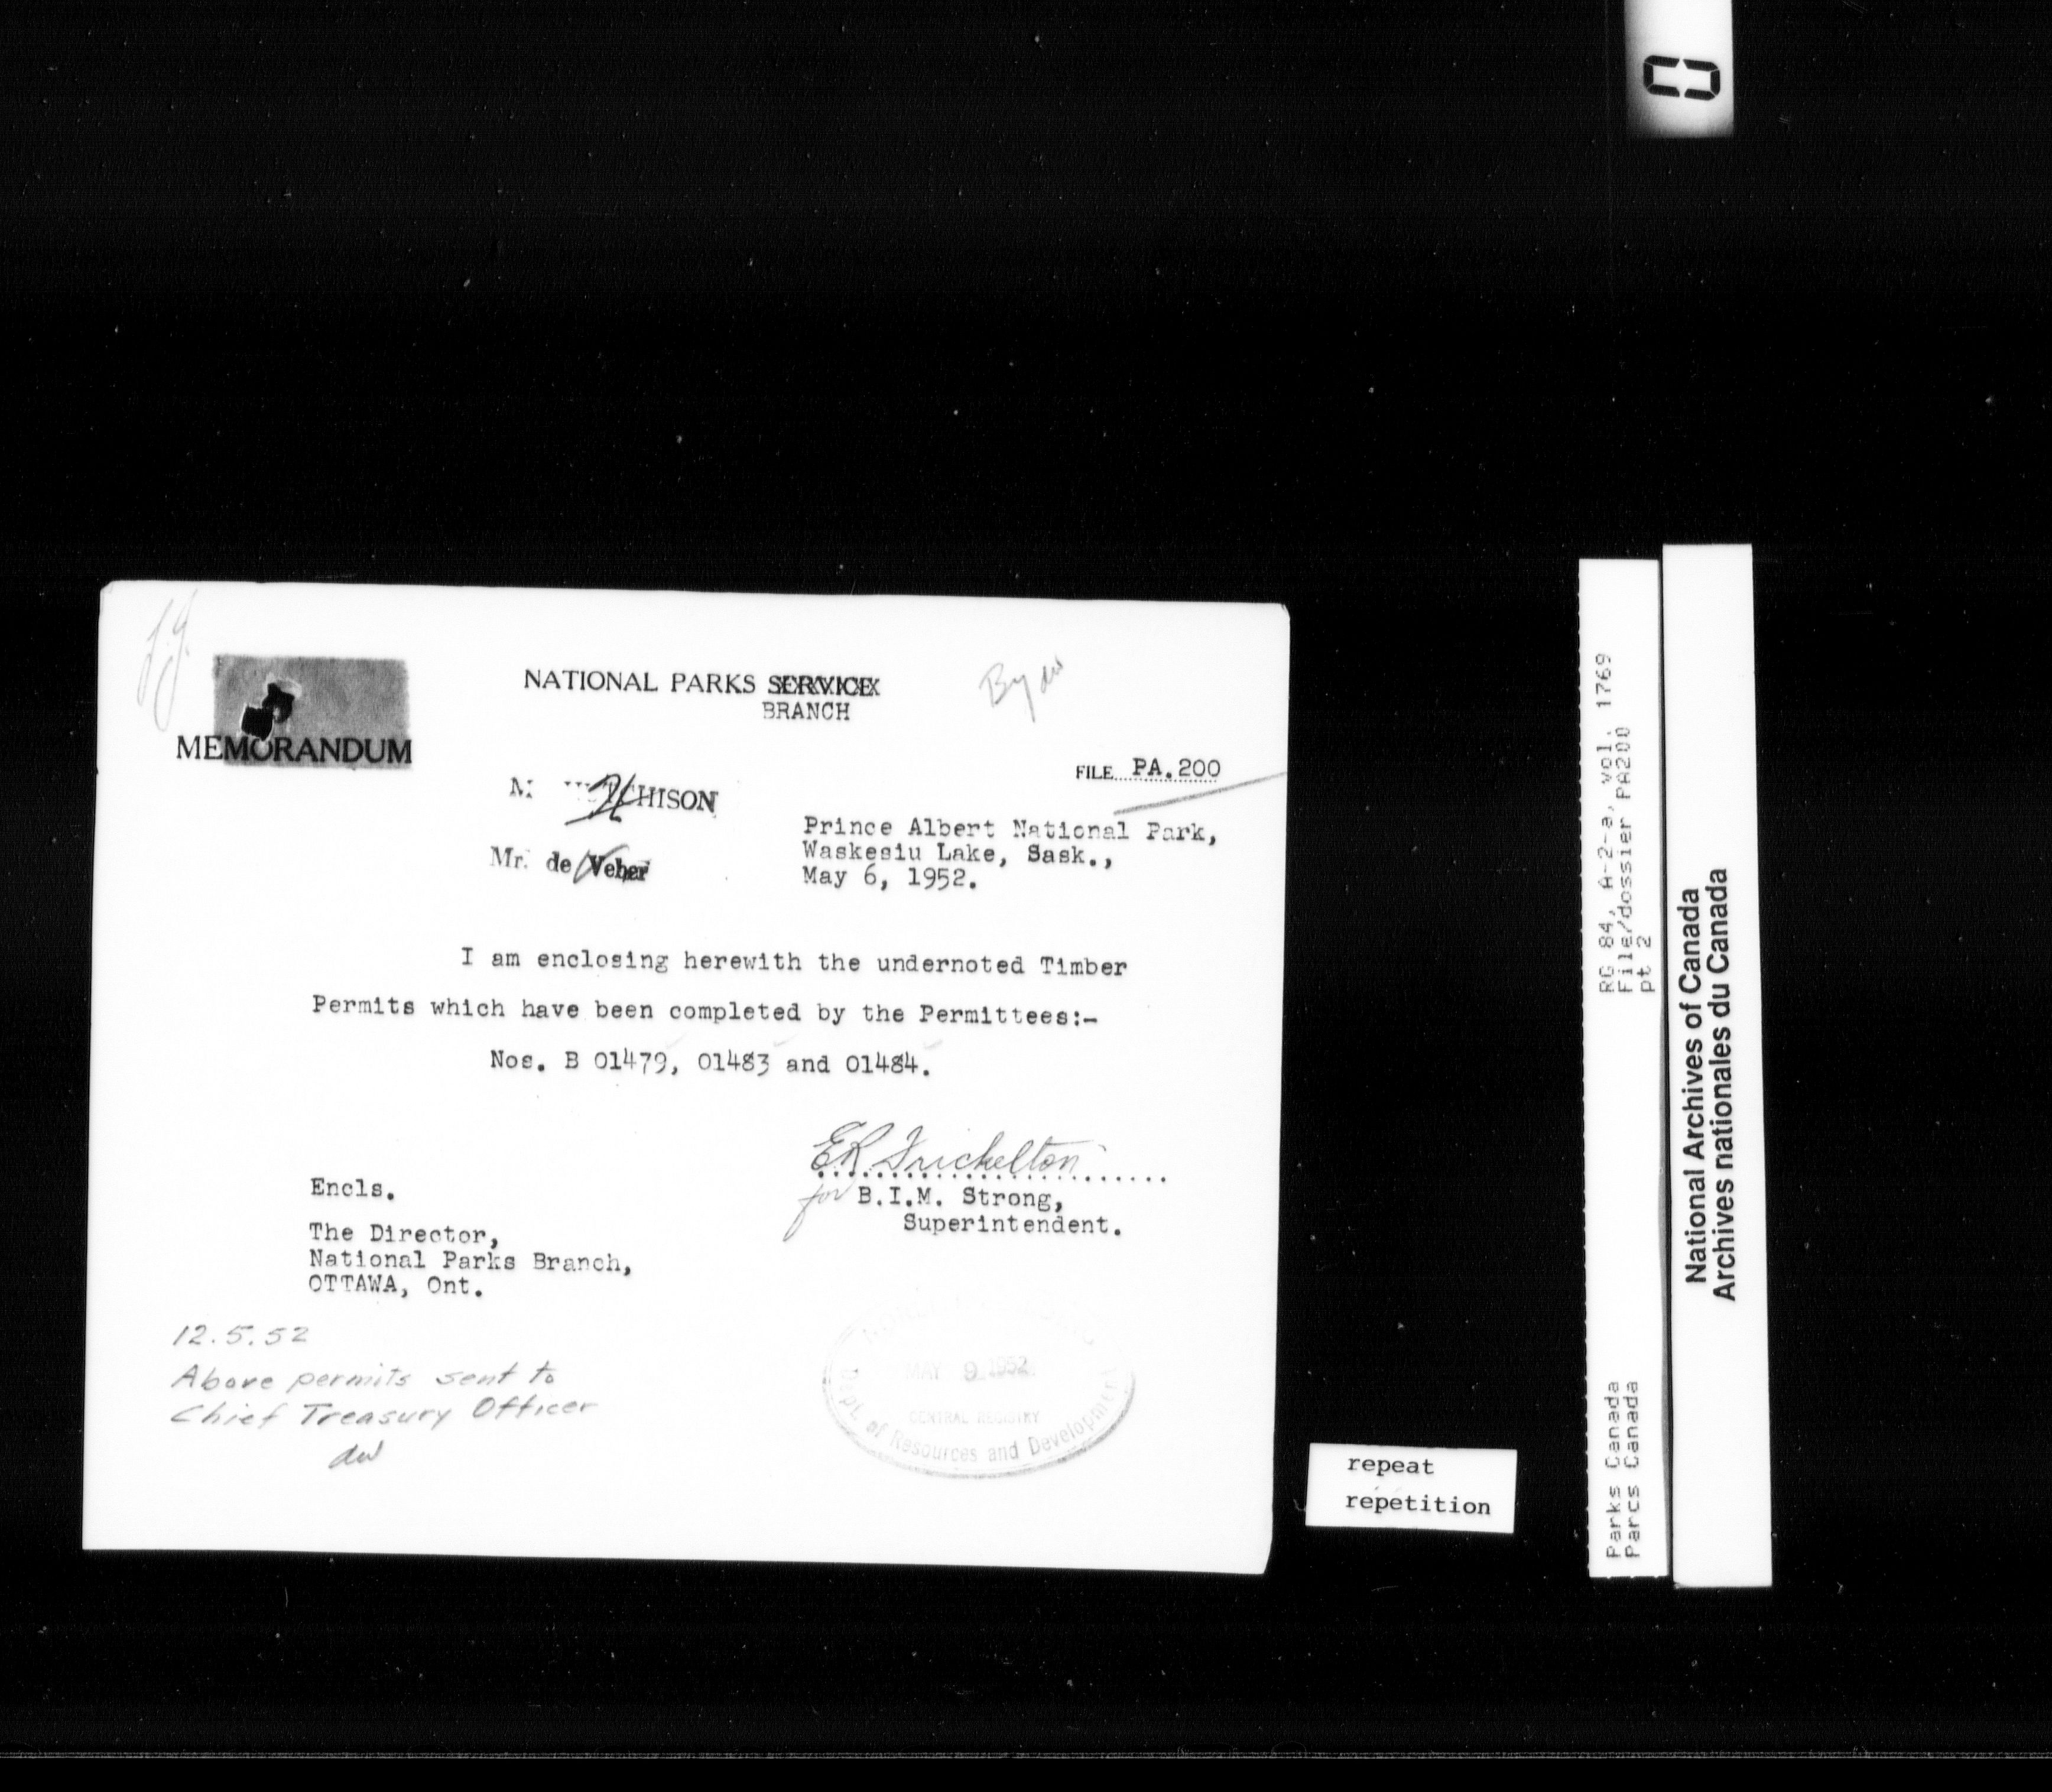 NATIONAL PARKS SERVICE
BRANCH
By dw
MEMORANDUM
FILE PA.200
HUTCHISON
Mr. de Veber
Prince Albert National Park,
Waskesiu Lake, Sask.,
May 6, 1952.
I am enclosing herewith the undernoted Timber
Permits which have been completed by the Permittees:-
Nos. B 01479, 01483 and 01484.
ER Trickelton
for B.I.M. Strong,
Superintendent.
Encls.
The Director,
National Parks Branch,
OTTAWA, Ont.
12.5.52
Above permits sent to
Chief Treasury Officer
dw
MAY 9 1952
CENTRAL REGISTRY
Dept. of Resources and Development
repeat
repetition
RG 84, A-2-a, vol. 1769
File/dossier PA200
pt 2
Parks Canada
Parcs Canada
National Archives of Canada
Archives nationales du Canada